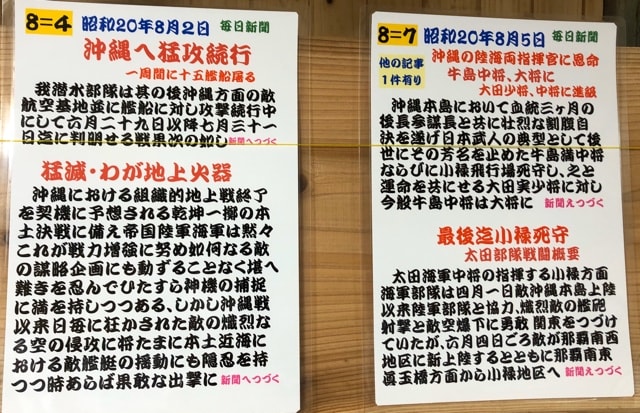 8=4 昭和20年8月2日 毎日新聞
沖縄へ猛攻続行
一周間に十五艦船屠る
我潜水部隊は其の後沖縄方面の敵
航空基地並に艦船に対し攻撃続行中
にして六月二十九日以降七月三十一
日迄に判明せる戦果次の如し 新聞へつづく
猛滅・わが地上火器
沖縄における組織的地上戦終了
を契機に予想される乾坤一擲の本
土決戦に備え帝国陸軍海軍は黙々
これが戦力増強に努め如何なる敵
の謀略企画にも動ずることなく堪へ
難きを忍んでひたすら神機の捕捉
に満を持しつつある、しかし沖縄戦
以来日毎に狂かされた敵の熾烈な
る空の侵攻に将たまに本土近海に
おける敵艦艇の揺動にも隠忍を持
つつ時あらば果敢な出撃に 新聞へつづく
8=7 昭和20年8月5日 毎日新聞
他の記事
1件有り
沖縄の陸海両指揮官に恩命
牛島中将、大将に
大田少将、中将に進級
沖縄本島において血統三ヶ月の
後長参謀長と共に壮烈な割腹自
決を遂げ日本武人の典型として後
世にその芳名を止めた牛島満中将
ならびに小禄飛行場死守し、之と
運命を共にせる大田実少将に対し
今般牛島中将は大将に 新聞えつづく
最後迄小禄死守
太田部隊戦闘概要
太田海軍中将の指揮する小禄方面
海軍部隊は四月一日敵沖縄本島上陸
以来陸軍部隊と協力、熾烈敵の艦砲
射撃と敵空爆下に勇敢 関東をつづけ
ていたが、六月四日ごろ敵が那覇南西
地区に新上陸するとともに那覇南東
眞玉橋方面から小禄地区へ 新聞えつづく